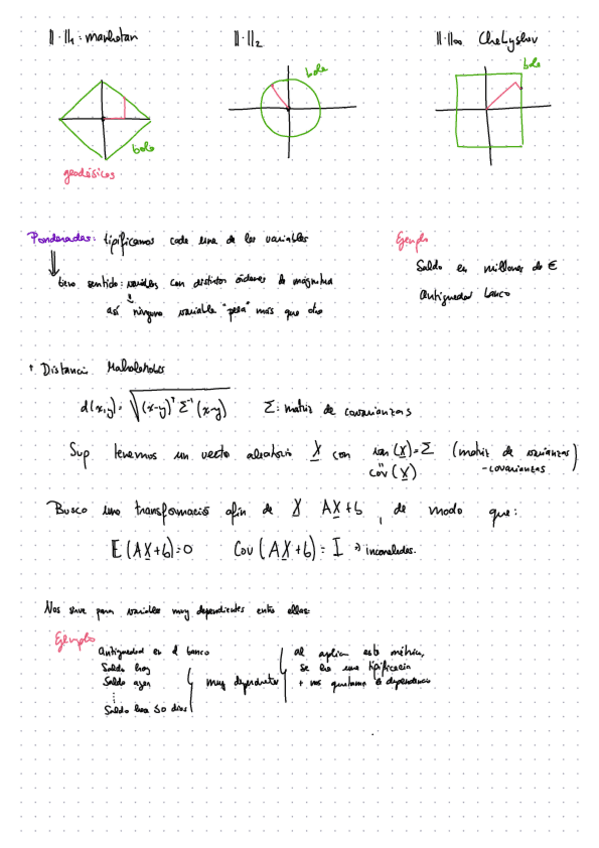 ||·||₁: manhatan
||·||₂
||·||∞ Chebyshov
bola
bola
bola
geodésicos
Ponderadas: tipificamos cada una de las variables
Ejemplo
tiene sentido: variables con distintos órdenes de magnitud
Saldo en millones de €
así ninguna variable "pesa" más que otra
Antiguedad banco
+ Distancia Mahalanobis
d(x,y) = √((x-y)ᵀ Σ⁻¹ (x-y)) Σ: matriz de covarianzas
Sup tenemos un vector aleatorio X con var(X) = Σ (matriz de varianzas
cov(X) -covarianzas)
Busco una transformació afin de X AX+b, de modo que:
E(AX+b)=0 Cov(AX+b) = I → incorreladas.
Nos sirve para variables muy dependientes entre ellas:
Ejemplo
Antiguedad en el banco
Saldo hoy
Saldo ayer
⋮
Saldo hace 30 días
muy dependientes
al aplicar esta métrica,
se hace una tipificación
+ nos quitamos la dependencia